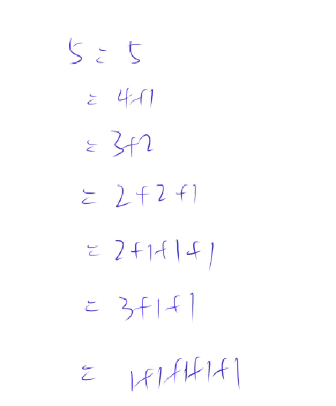 5 = 5
= 4+1
= 3+2
= 2+2+1
= 2+1+1+1
= 3+1+1
= 1+1+1+1+1